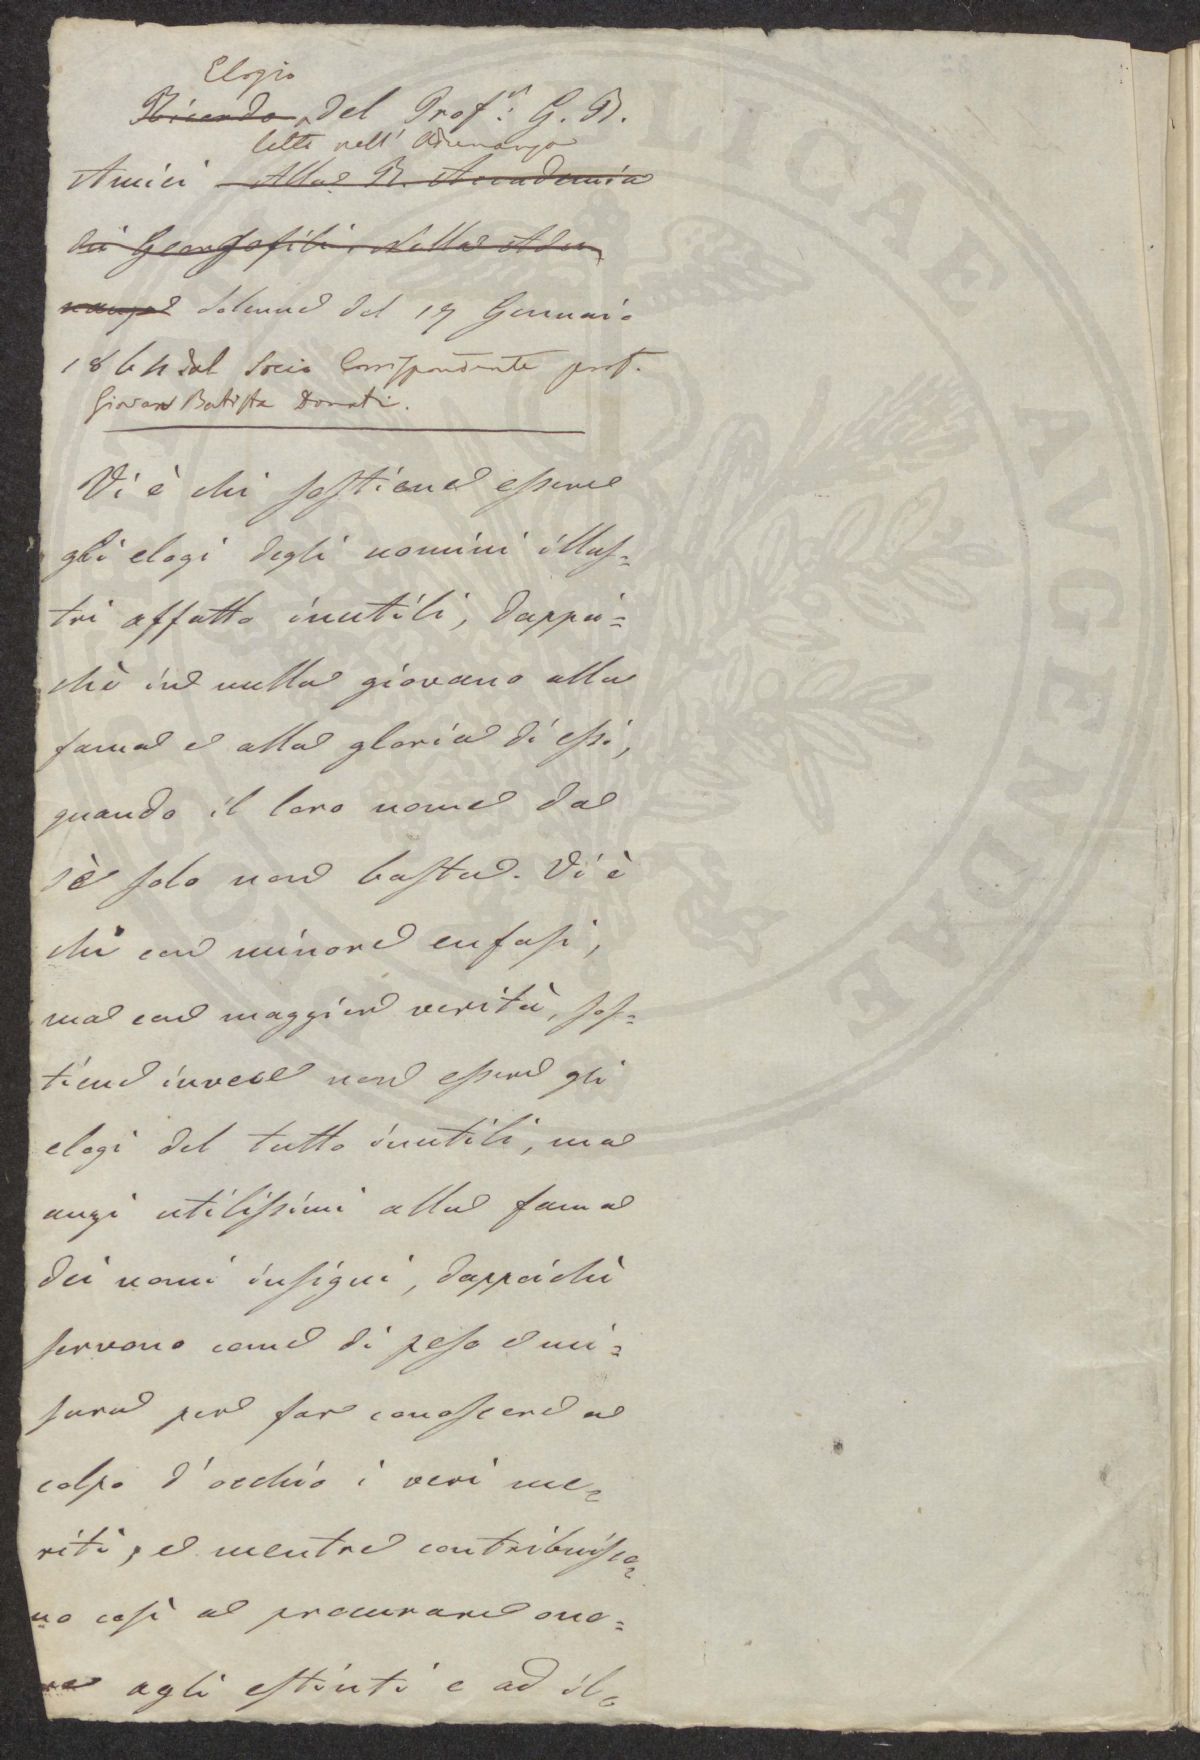 Elogio
~~Ricordo~~ del Prof.r G. B.
letto nell' Adunanza
Amici ~~Alla R. Accademia~~
~~dei Georgofili. Nella Adu~~
~~nanza~~ solenne del 17 Gennaio
1864 dal Socio Corrispondente prof.
Giovan Batista Donati.
Vi è chi sostiene essere
gli elogi degli uomini illus=
tri affatto inutili, dappoi=
chè in nulla giovano alla
fama e alla gloria di essi,
quando il loro nome da
sè solo non basta. Vi è
chi con minore enfasi,
ma con maggior verità, sos=
tiene invece non essere gli
elogi del tutto inutili, ma
anzi utilissimi alla fama
dei nomi insigni, dappoichè
servono come di peso e mi=
sura per far conoscere a
colpo d'occhio i veri me=
riti; e mentre contribuisco=
no così a procurare ono=
re agli estinti e ad il=
AUSCULTA FILI VERBA MAGISTRI
REI PUBLICAE AUGENDAE